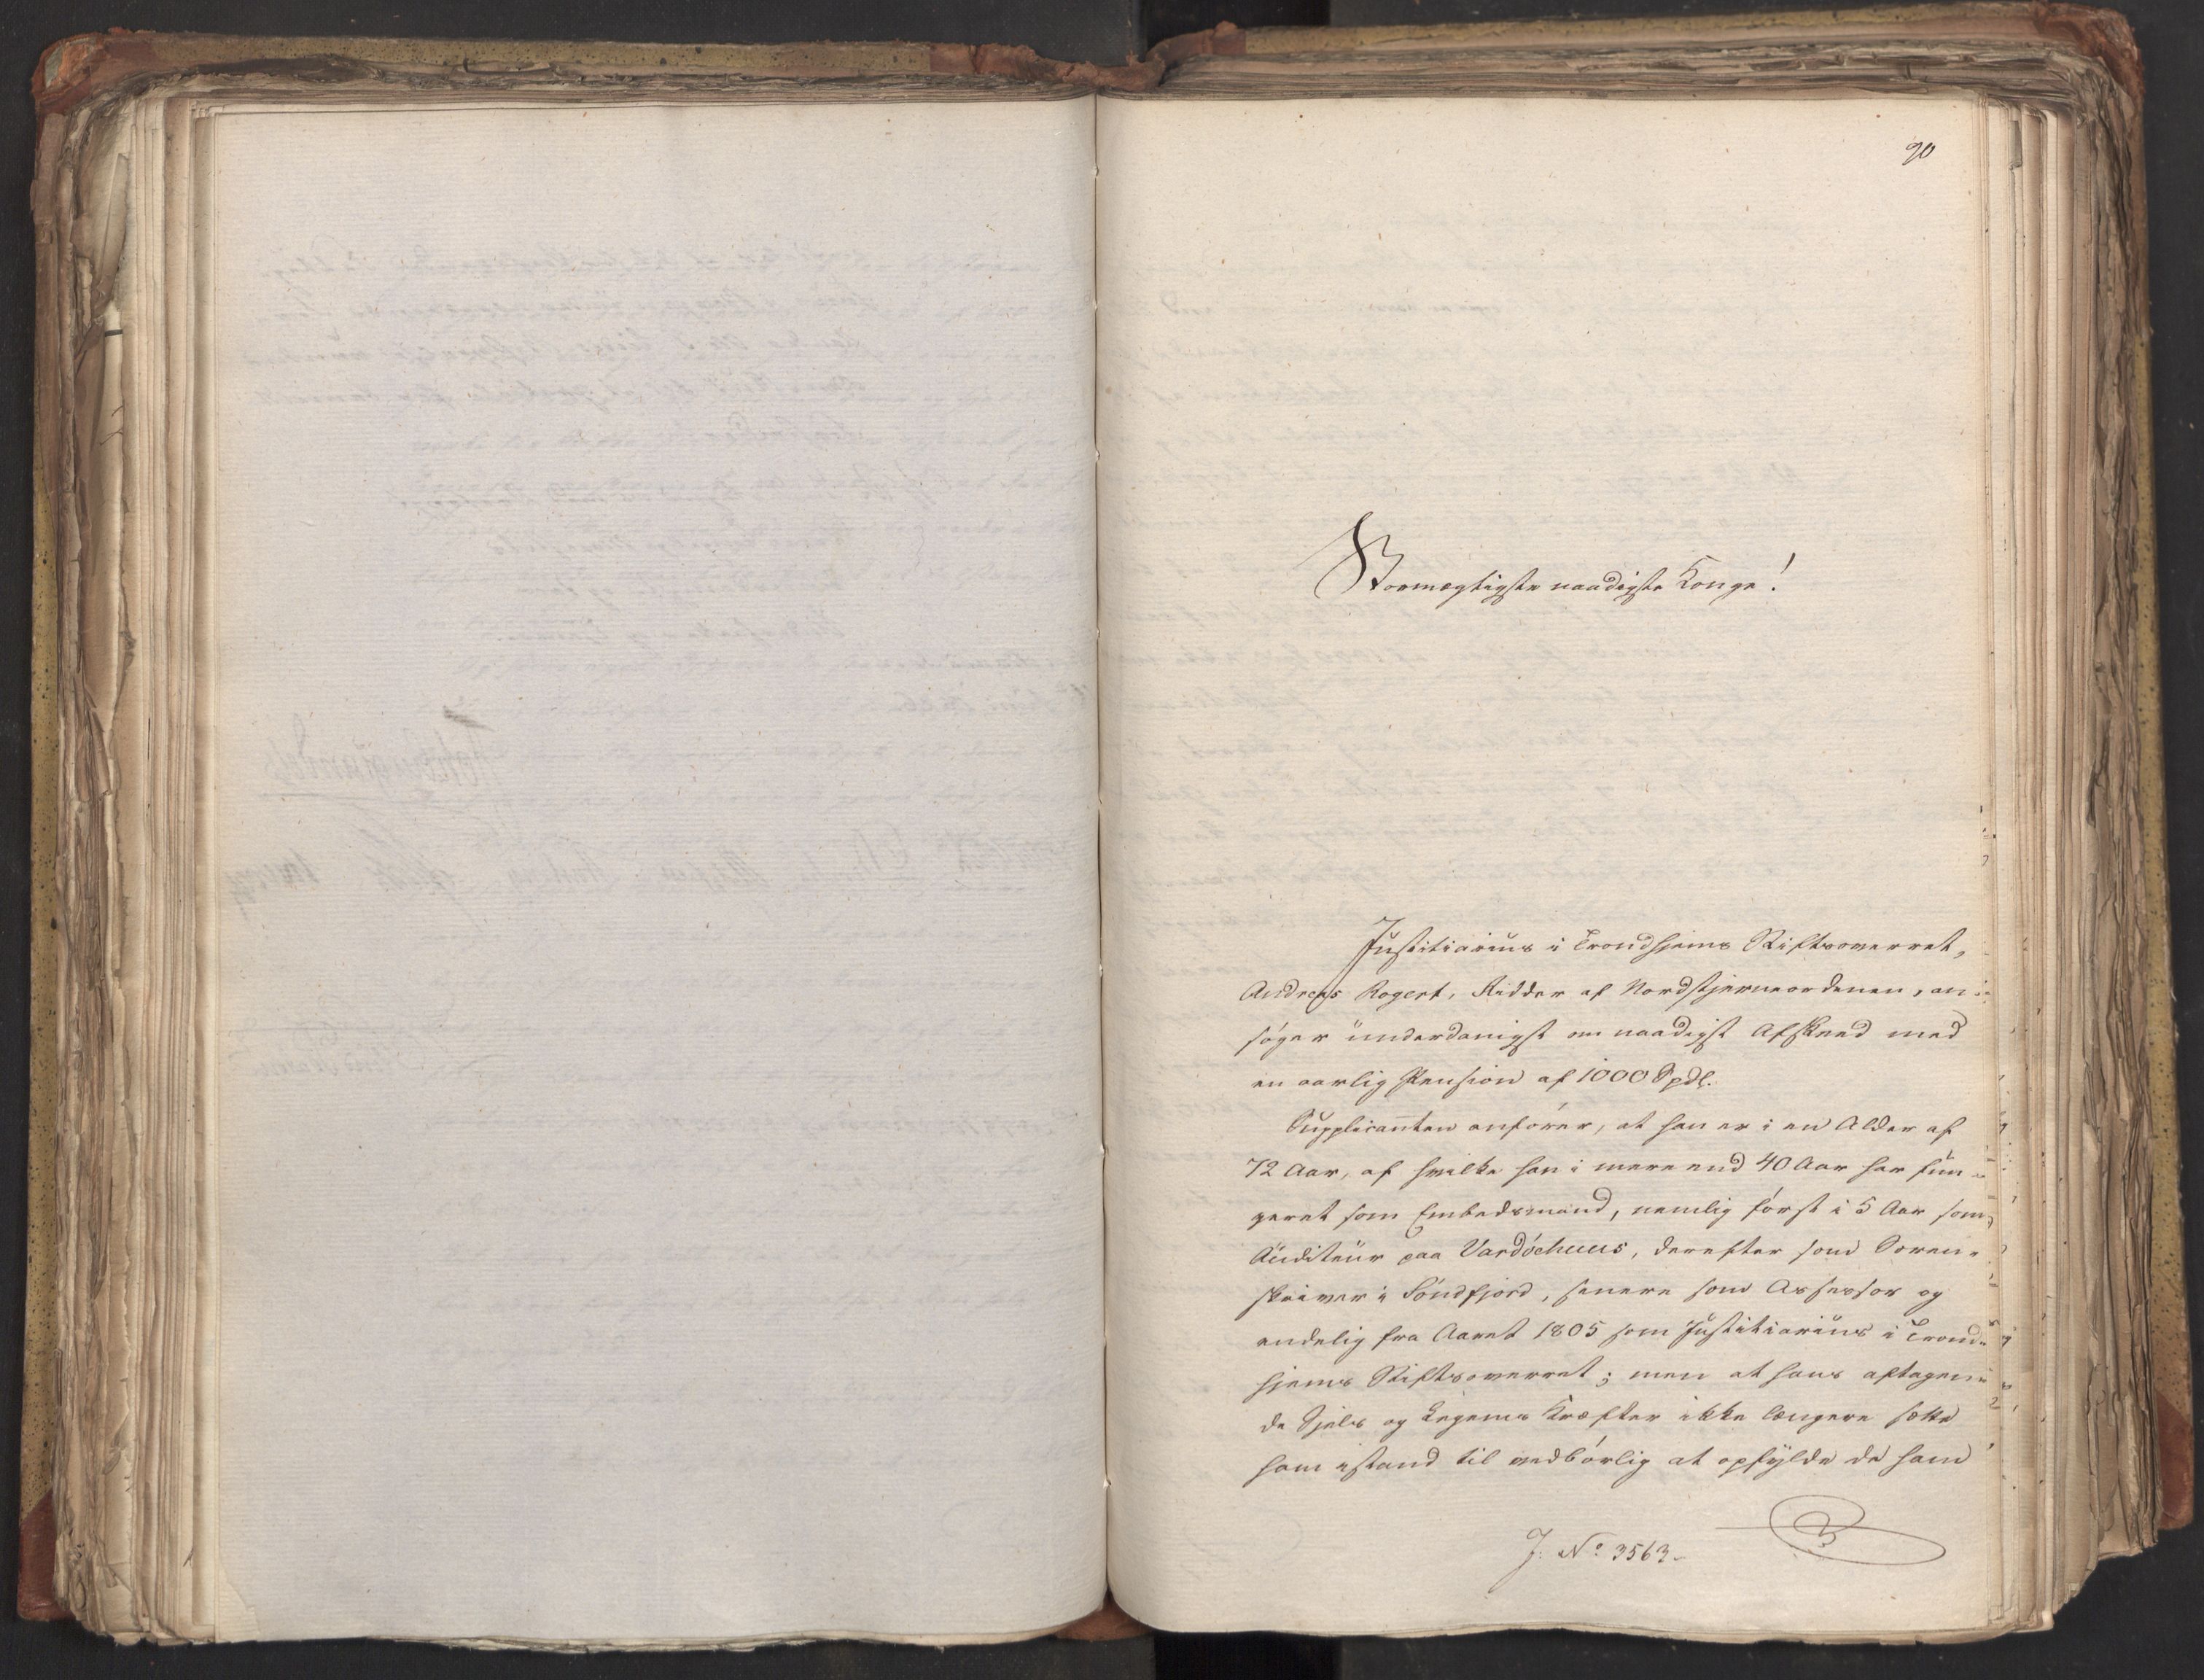 90
Stormægtigste naadigste Konge!
Justitiarius i Trondhjems Stiftsoverret,
Andreas Rogert, Ridder af Nordstjerneordenen, an-
søger underdanigst om naadigst Afskeed med
en aarlig Pension af 1000 Spdl.
Supplicanten anfører, at han er i en Alder af
72 Aar, af hvilke han i mere end 40 Aar har fun-
geret som Embedsmand, nemlig først i 5 Aar som
Auditeur paa Vardöehuus, derefter som Soren-
skriver i Söndfjord, senere som Assessor og
endelig fra Aaret 1805 som Justitiarius i Trond-
hjems Stiftsoverret; men at hans aftagen-
de Sjels og Legems Kræfter ikke længere sætte
ham istand til vedbørlig at opfylde de ham
J: No 3563.